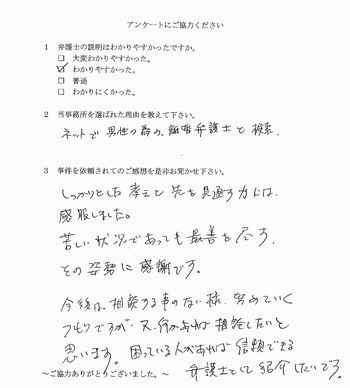 アンケートにご協力ください
1 弁護士の説明はわかりやすかったですか。
□ 大変わかりやすかった。
☑ わかりやすかった。
□ 普通
□ わかりにくかった。
2 当事務所を選ばれた理由を教えて下さい。
ネットで 男性の為の、離婚弁護士と検索.
3 事件を依頼されてのご感想を是非お聞かせ下さい。
しっかりとした考えと 先を見通す力には、
感服しました。
苦しい状況であっても最善を尽す、
その姿勢に感謝です。
今後は、相談する事のない様、努めていく
つもりですが、又、何かあれば相談したいと
思います。困っている人があれば信頼できる
弁護士として紹介したいです。
～ご協力ありがとうございました。～